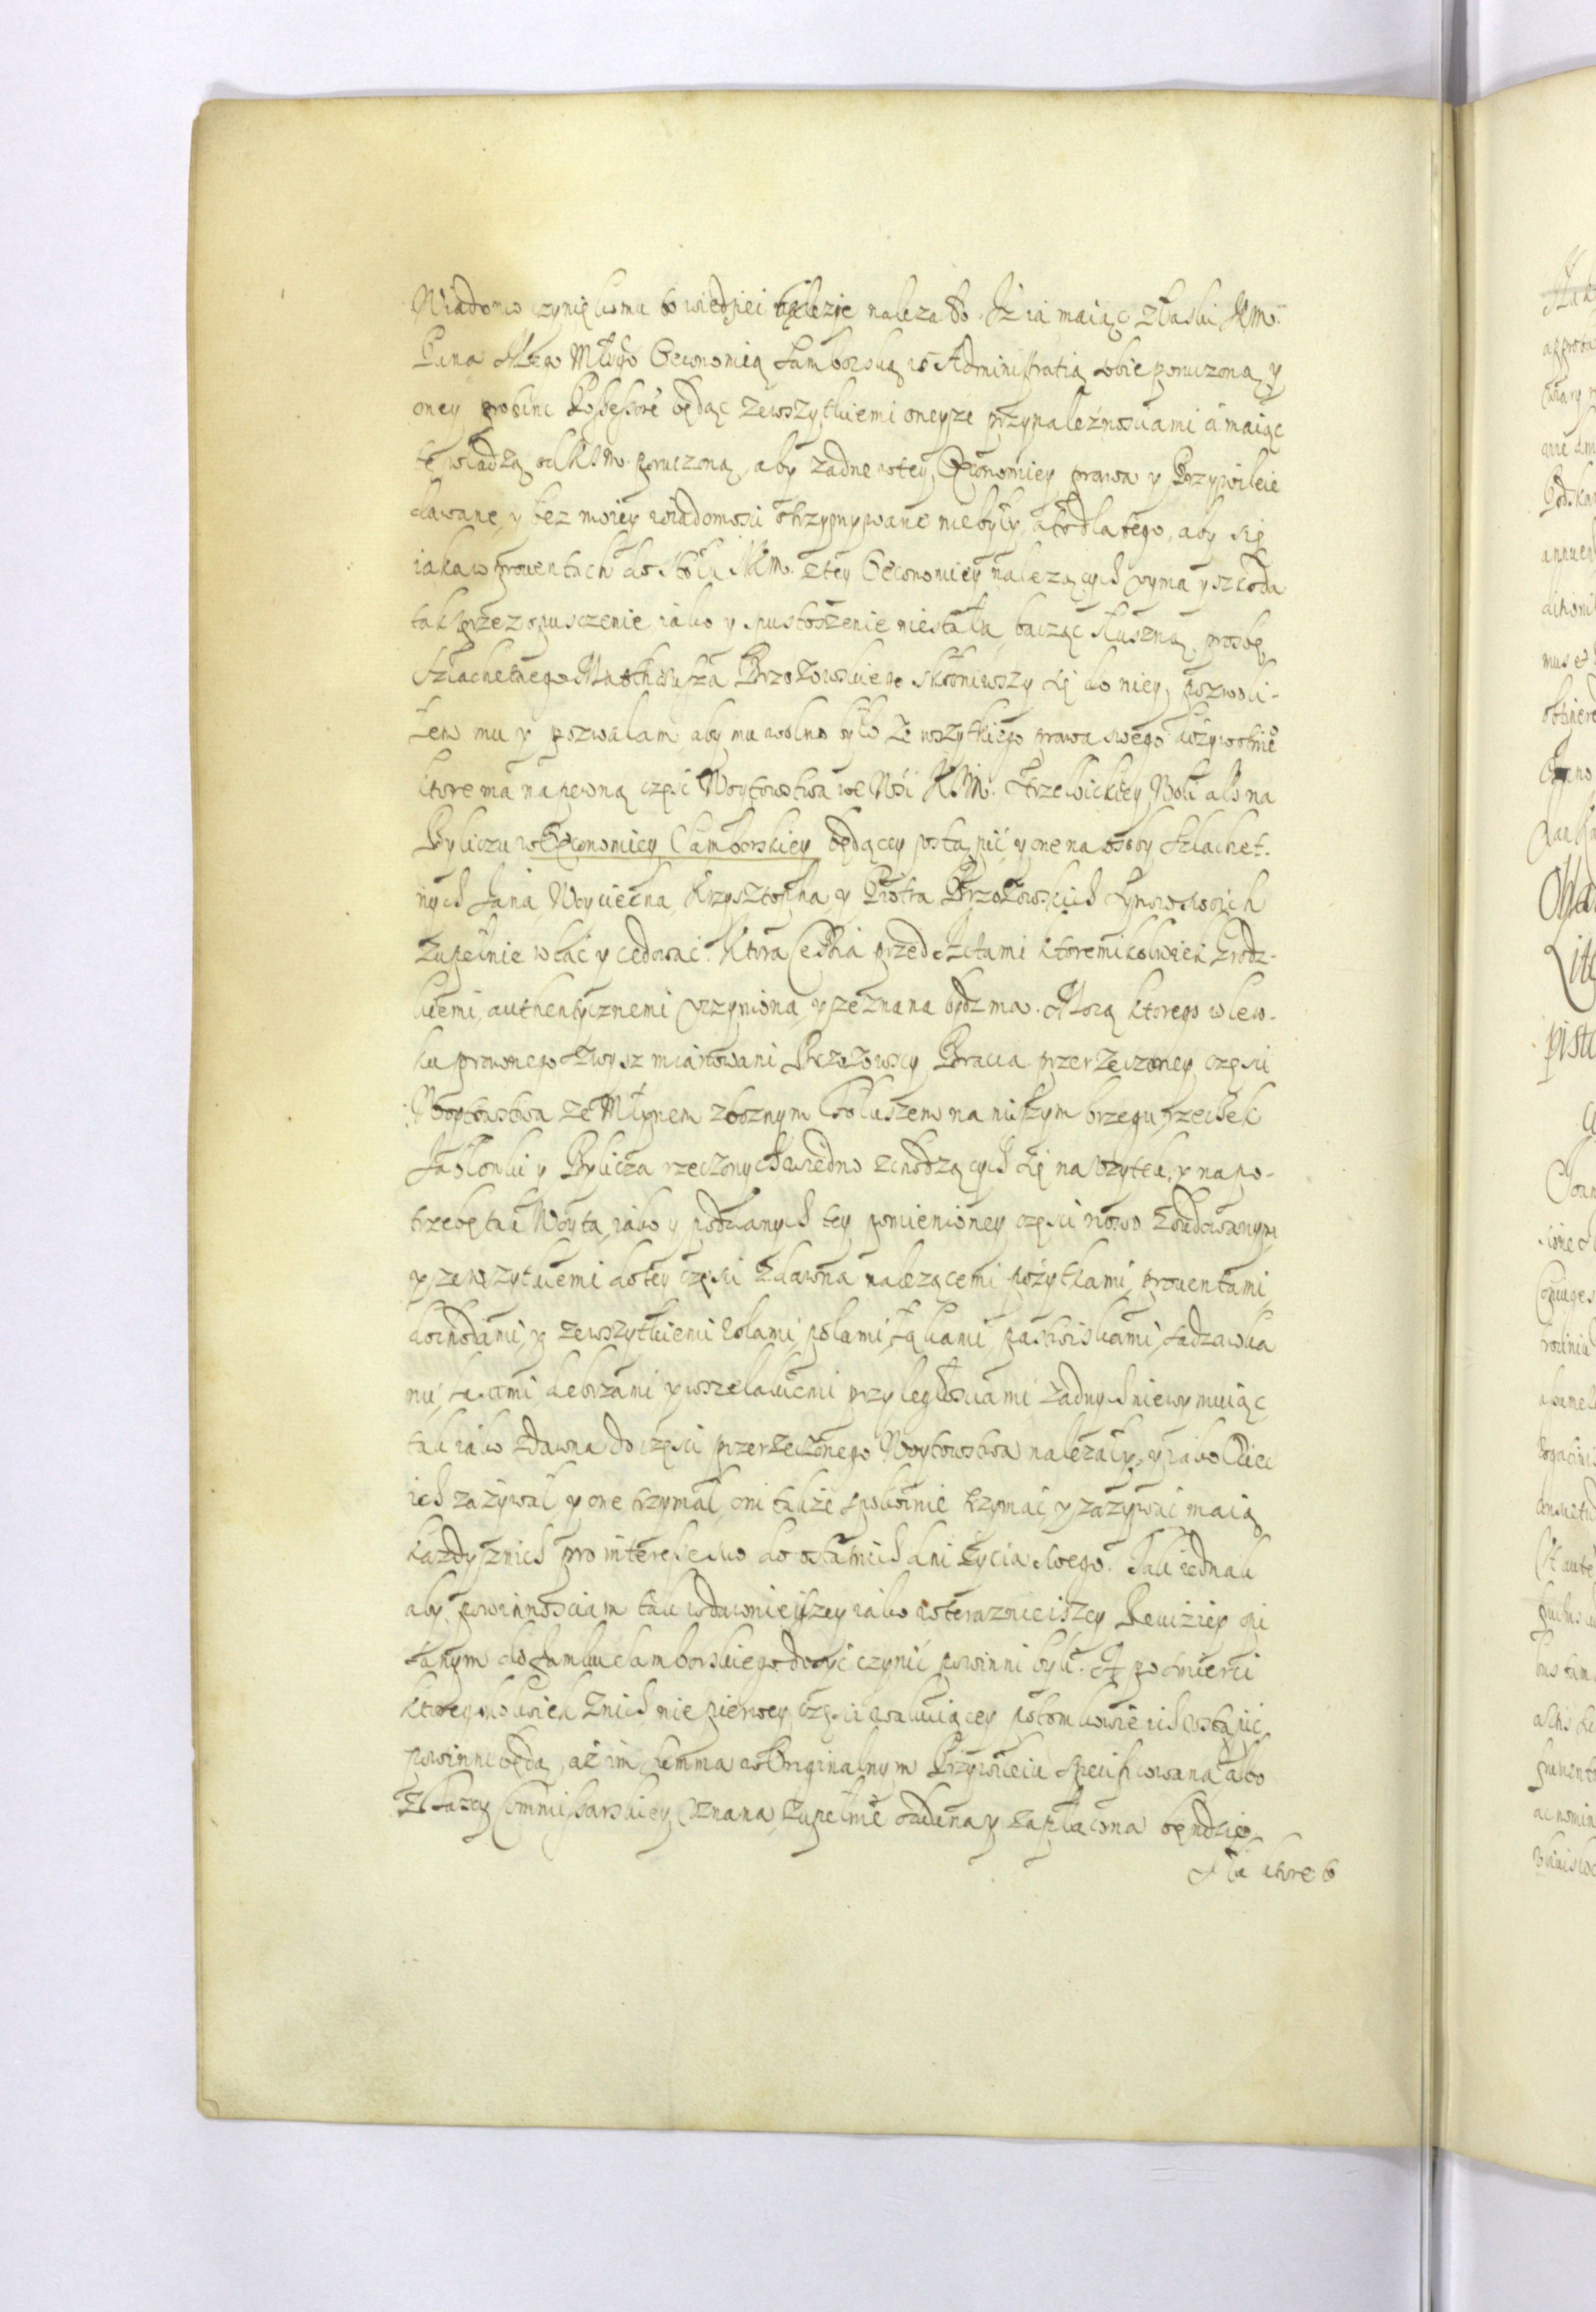 Wiadomo czynię komu to wiedziec należe nalezało. Iż ia maiąc z łaski JKM.
Pana Mego Młgo Oeconomią Samborską w Administratią sobie poruczoną y
oney protunc Possessore będąc ze wszytkiemi oneyze przynależnosciami a maiąc
tę władzą od KJM. poruczoną, aby zadne w tey Oeconomiey prawa y Przywileie
dawane, y bez moiey wiadomosci otrzymywane niebyły, a to dlatego, aby się
iaka w prouentach do stołu JKM. z tey Oeconomiey nalezących uyma y szkoda
tak przez opusczenie iako y spustoszenie niestała, bacząc słuszną prosbę
Szlachetnego Mathiusza Brzozowskiego skłoniwszy się do niey, pozwoli-
łem mu y pozwalam aby mu wolno było ze wszytkiego prawa swego dożywotnie
ktore ma na pewną częsc Woytowstwa we Wsi KJM. Strzelbickiey Woli albo na
Byliczu w Oeconomiey Samborskiey będącey postąpić y one na osoby Szlachet-
nych Jana Woyciecha Krzysztopha y Piotra Brzozowskich Synow swoich
zupełnie wlać y cedować. Ktora Cessia przed Actami ktoremikolwiek Grodz-
kiemi authentycznemi uczyniona y zeznana bydz ma. Mocą ktorego wlew-
ku prawnego zwysz mianowani Brzozowscy Bracia przerzeczoney częsci
Woytowstwa ze Młynem zboznym Foluszem na niższym brzegu rzeczek
Jablonki y Bylicza rzeczonych w iedno schodzących się na uzytek, y na po-
trzebę tak Woyta, iako y poddanych tey pomienioney częsci nowo zbudowanym,
y ze wszytkiemi do tey częsci zdawna nalezącemi pożytkami, prouentami,
dochodami, y ze wszytkiemi rolami, polami, łąkami, pastwiskami, sadzawka
mi, lasami debrzami y wszelakiemi przyległosciami żadnych niewymuiąc
tak iako zdawna do częsci przerzeczonego Woytowstwa nalezały, y iako Ociec
ich zażywał, y one trzymał, oni także społecznie trzymać y zażywać maią
każdy z nich pro interesse suo do ostatnich dni życia swego. Tak iednak
aby powinnosciam tak w dawnieyszey iako w terazniejszey Rewiziey opi
sanym do Zamku Samborskiego dosyć czynić powinni byli. A po smierci
ktoregokolwiek z nich nie pierwey częsci wakuiącey potomkowie ich ustąpić
powinni będą, aż im summa w Originalnym Przywileiu specificowana albo
z łaszcy Commissarskiey uznana, zupełnie oddana y zapłacona będzie.
Na ktore to